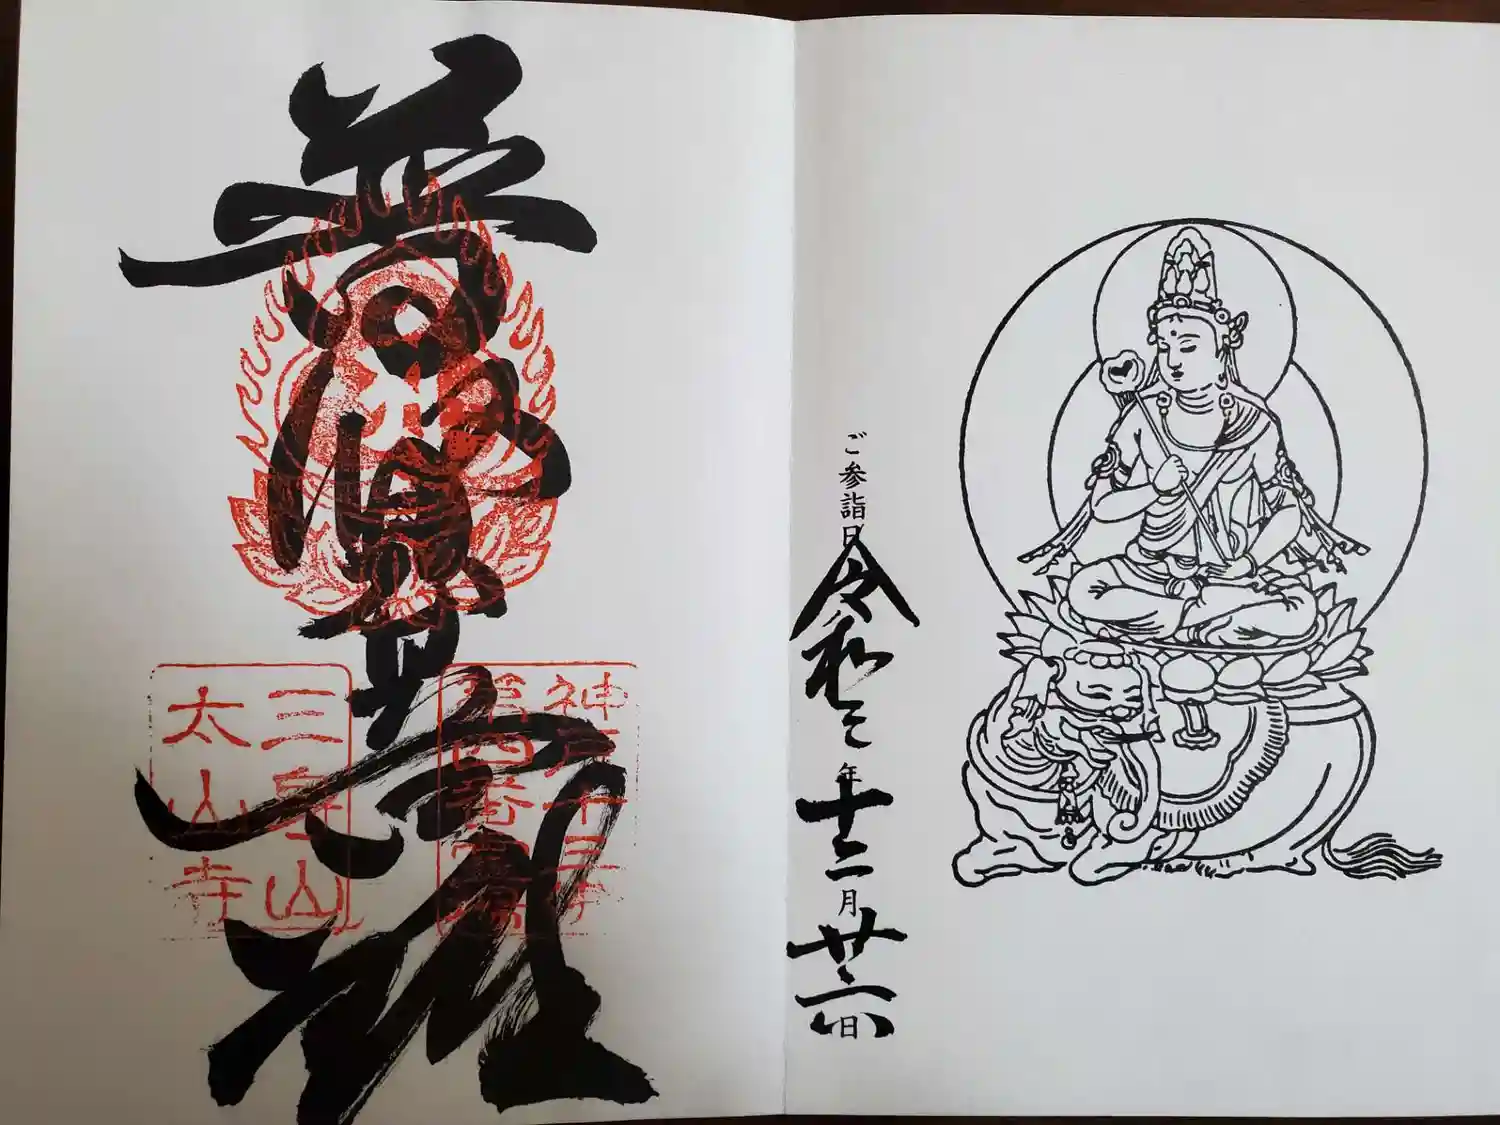 ご参詣日 令和三年十二月廿六日
普賢菩薩
神戸十三
第四番霊場
三身山
太山寺